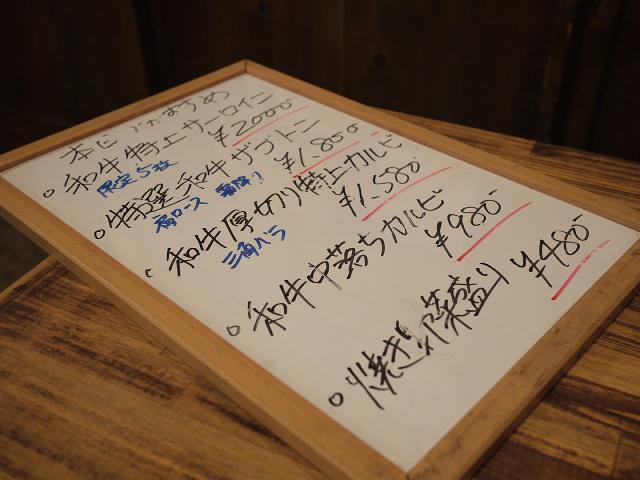 本日のおすすめ
○和牛特上サーロイン
限定5枚 ¥2000-
○特選和牛ザブトン
肩ロース 霜降り ¥1,800
○和牛厚切り特上カルビ
三角バラ ¥1,580-
○和牛中落ちカルビ
¥980-
○焼き野菜盛り ¥480-